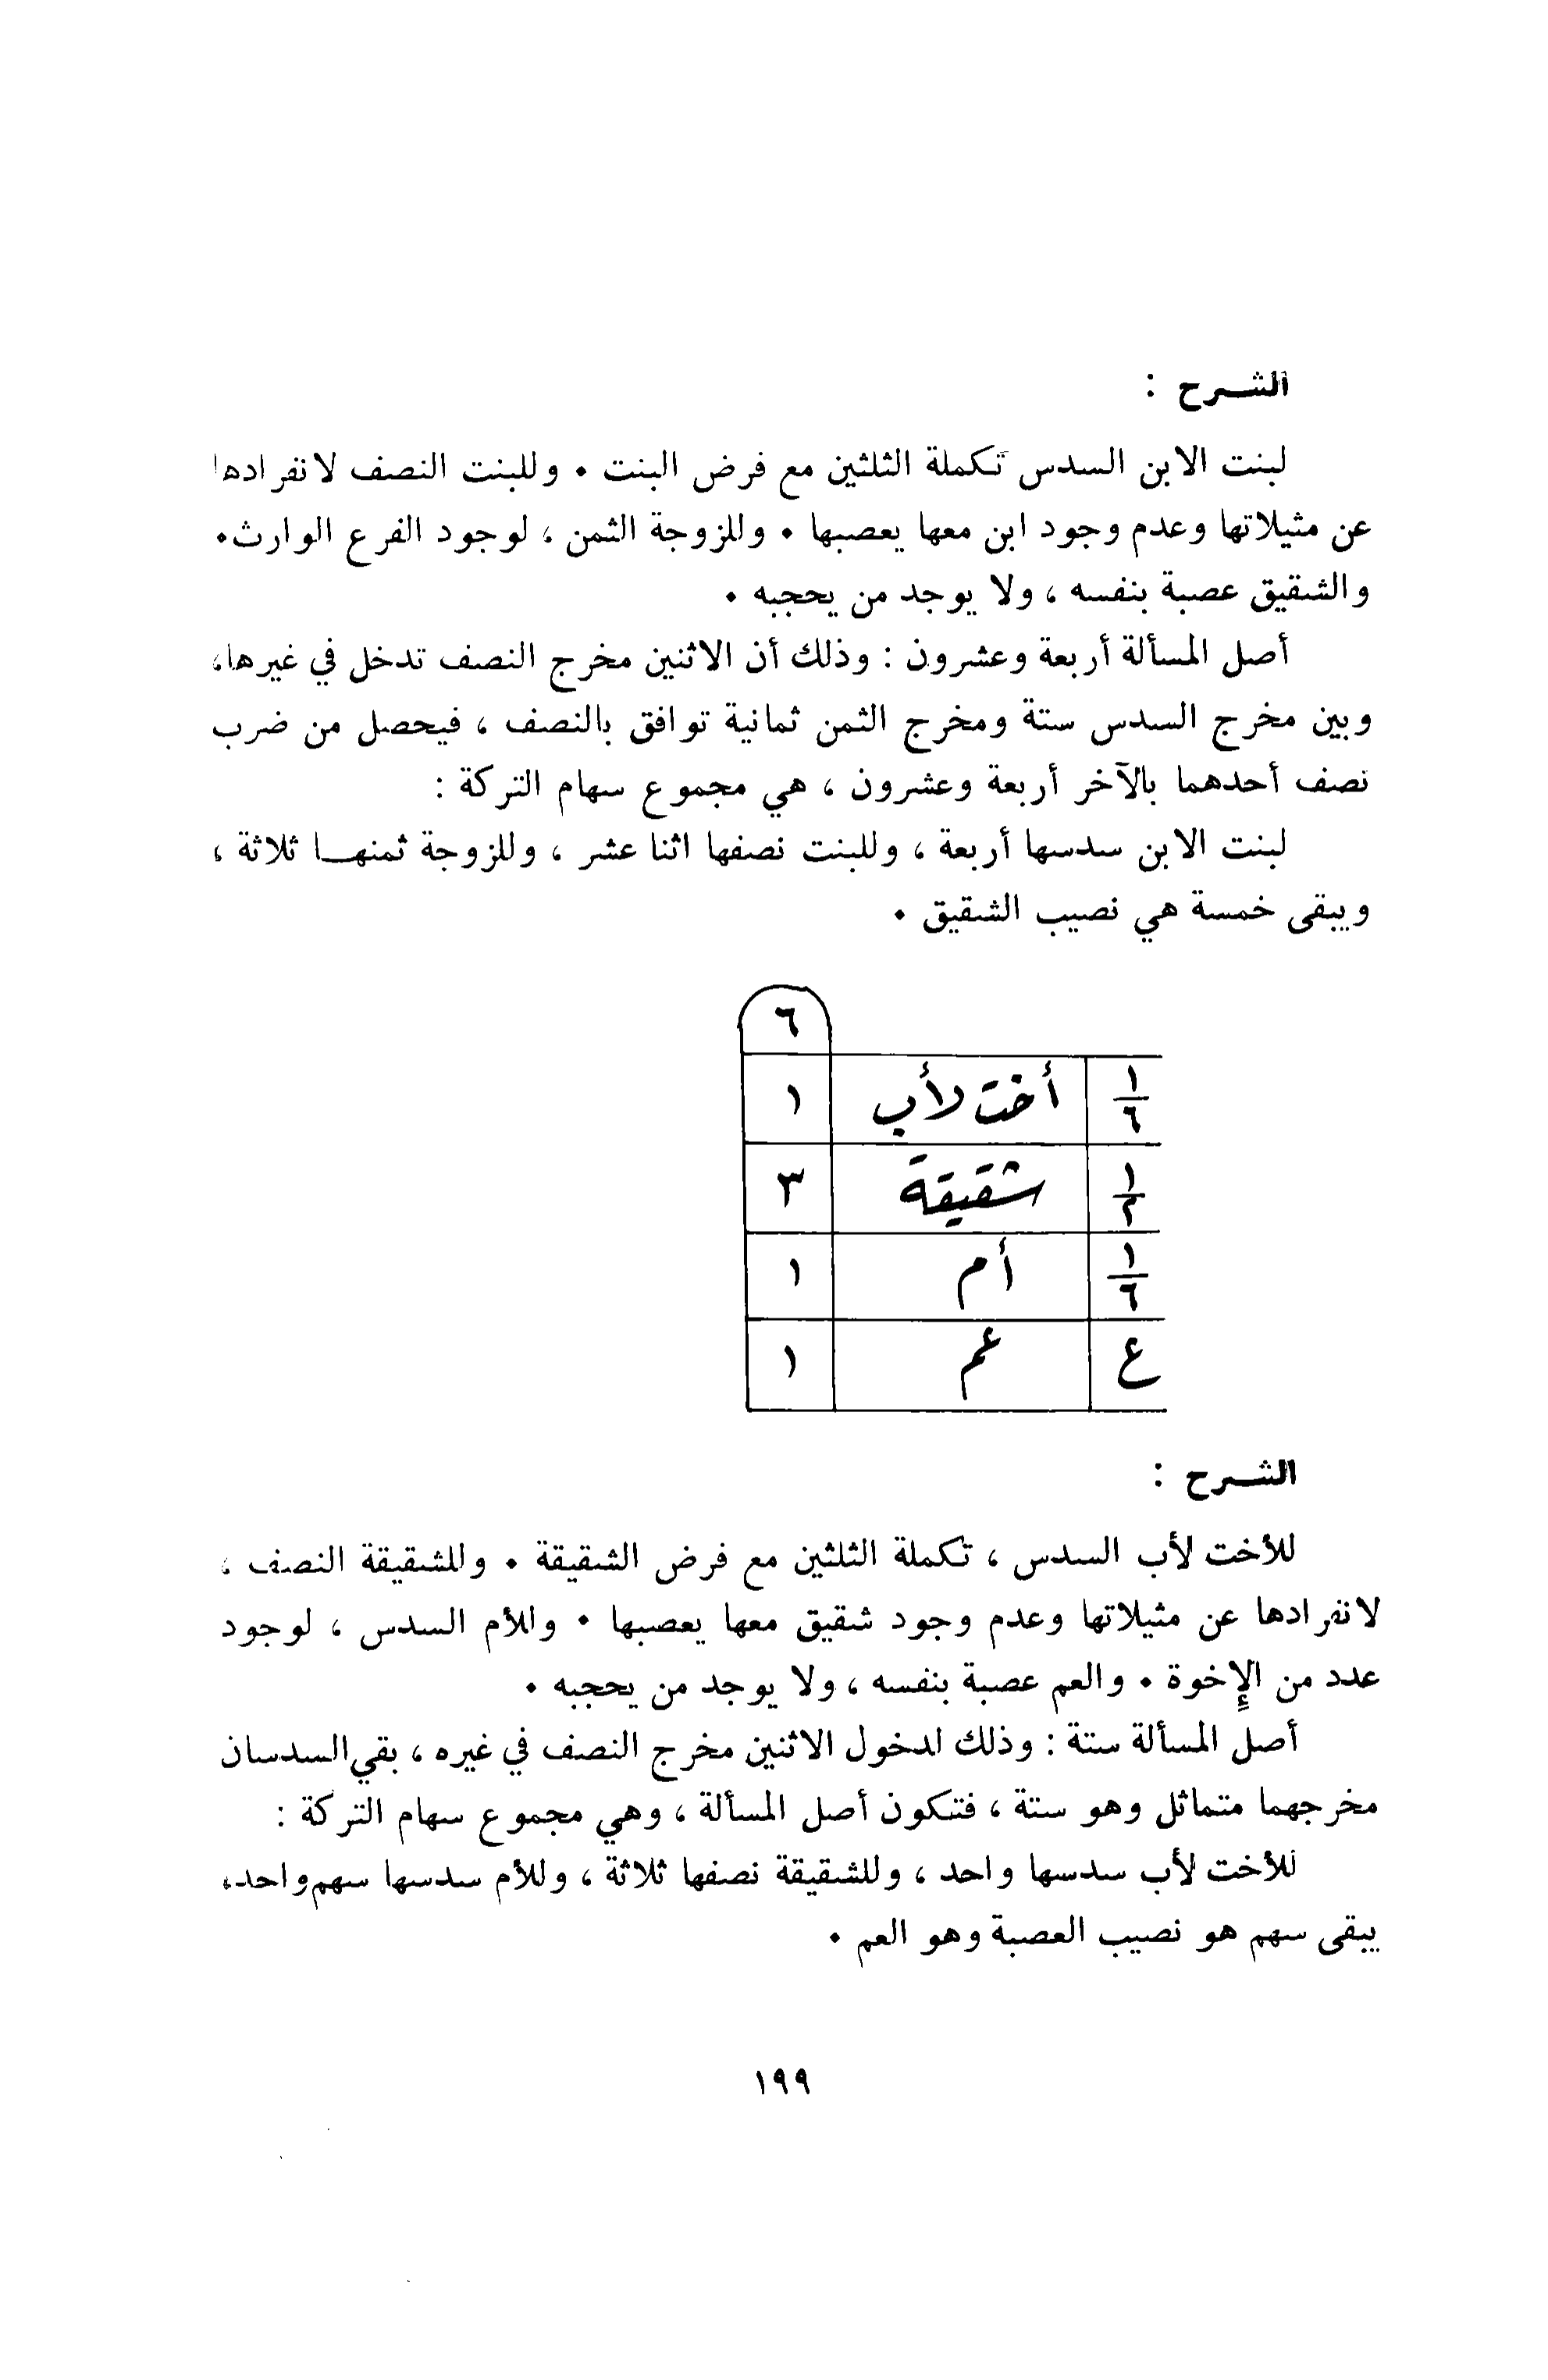 الشرح :
لبنت الابن السدس تكملة الثلثين مع فرض البنت • وللبنت النصف لانفرادها
عن مثيلاتها وعدم وجود ابن معها يعصبها • وللزوجة الثمن ، لوجود الفرع الوارث•
والشقيق عصبة بنفسه ، ولا يوجد من يحجبه •
أصل المسألة أربعة وعشرون : وذلك أن الاثنين مخرج النصف تدخل في غيرها،
وبين مخرج السدس ستة ومخرج الثمن ثمانية توافق بالنصف ، فيحصل من ضرب
نصف أحدهما بالآخر أربعة وعشرون ، هي مجموع سهام التركة :
لبنت الابن سدسها أربعة ، وللبنت نصفها اثنا عشر ، وللزوجة ثمنهــا ثلاثة ،
ويبقى خمسة هي نصيب الشقيق •
٦
١/٦ أخت لأب ١
١/٢ شقيقة ٣
١/٦ أم ١
ع عم ١
الشرح :
للأخت لأب السدس ، تكملة الثلثين مع فرض الشقيقة • وللشقيقة النصف ،
لانفرادها عن مثيلاتها وعدم وجود شقيق معها يعصبها • وللأم السدس ، لوجود
عدد من الإخوة • والعم عصبة بنفسه ، ولا يوجد من يحجبه •
أصل المسألة ستة : وذلك لدخول الاثنين مخرج النصف في غيره ، بقي السدسان
مخرجهما متماثل وهو ستة ، فتكون أصل المسألة ، وهي مجموع سهام التركة :
للأخت لأب سدسها واحد ، وللشقيقة نصفها ثلاثة ، وللأم سدسها سهم واحد،
يبقى سهم هو نصيب العصبة وهو العم •
١٩٩